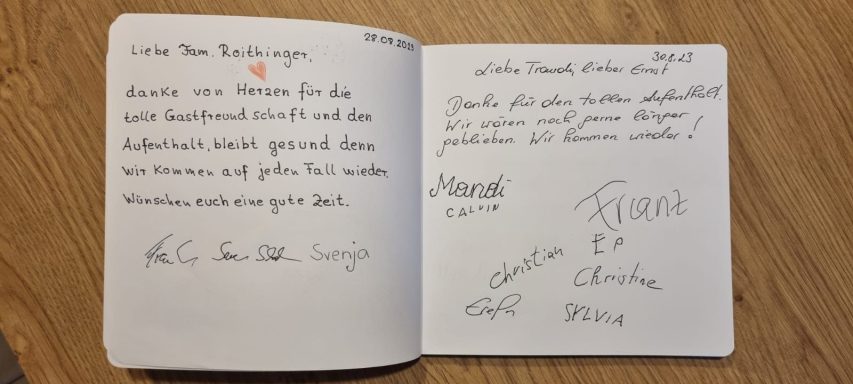 28.08.2023
Liebe Fam. Roithinger,
danke von Herzen für die
tolle Gastfreundschaft und den
Aufenthalt, bleibt gesund denn
wir kommen auf jeden Fall wieder.
Wünschen euch eine gute Zeit.
Svenja
30.8.23
Liebe Traudi, lieber Ernst
Danke für den tollen Aufenthalt.
Wir wären noch gerne länger
geblieben. Wir kommen wieder!
Mandi
CALVIN
Franz
Christian
Christine
SYLVIA